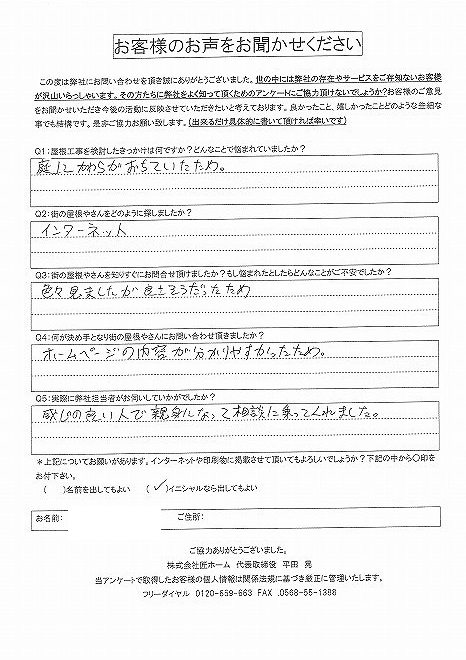 お客様のお声をお聞かせください
この度は弊社にお問い合わせを頂き誠にありがとうございました。世の中には弊社の存在やサービスをご存知ないお客様
が沢山いらっしゃいます。その方たちに弊社をよく知って頂くためのアンケートにご協力頂けないでしょうか?お客様のご意見
をお聞かせいただき今後の活動に反映させていただきたいと考えております。良かったこと、嬉しかったことどのような些細な
事でも結構です。是非ご協力お願い致します。(出来るだけ具体的に書いて頂ければ幸いです)
Q1:屋根工事を検討したきっかけは何ですか?どんなことで悩まれていましたか?
庭にかわらがおちていたため。
Q2:街の屋根やさんをどのように探しましたか?
インターネット
Q3:街の屋根やさんを知りすぐにお問合せ頂けましたか?もし悩まれたとしたらどんなことがご不安でしたか?
色々見ましたが良さそうだったため
Q4:何が決め手となり街の屋根やさんにお問い合わせ頂きましたか?
ホームページの内容が分かりやすかったため。
Q5:実際に弊社担当者がお伺いしていかがでしたか?
感じの良い人で親身になって相談に乗ってくれました。
*上記についてお願いがあります。インターネットや印刷物に掲載させて頂いてもよろしいでしょうか?下記の中から〇印を
お付下さい。
( )名前を出してもよい (✓)イニシャルなら出してもよい
お名前: ご住所:
ご協力ありがとうございました。
株式会社匠ホーム 代表取締役 平田 亮
当アンケートで取得したお客様の個人情報は関係法規に基づき厳正に管理いたします。
フリーダイヤル 0120-659-663 FAX .0568-55-1388